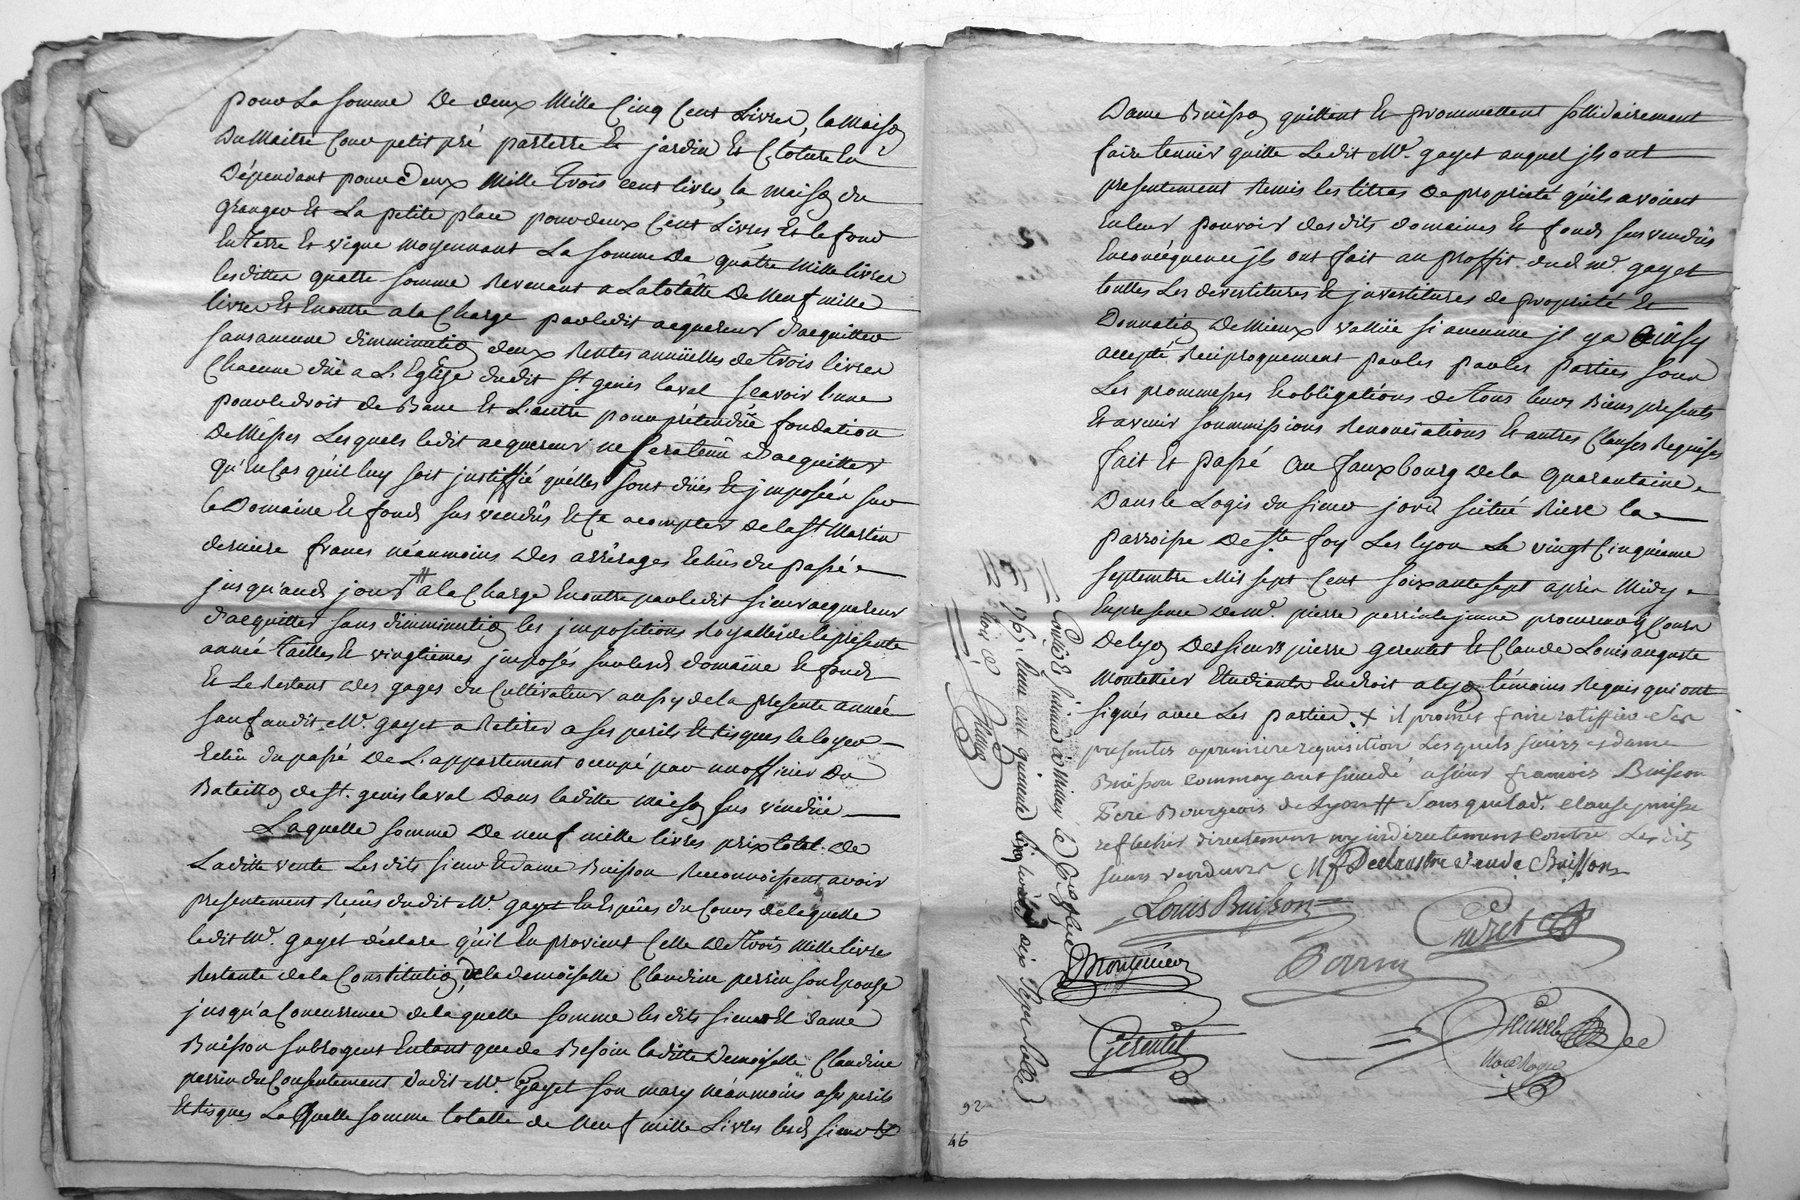 pour La somme De deux Mille Cinq Cent Livres, la maison
Du Maitre Cour petit pré parterre Et jardin Et Cloture En
Dépendant pour Deux Mille Trois cent livres, la maison du
Granger Et La petite place pour deux Cent Livres Et le fond
En Terre Et vigne moyennant La Somme De quatre Mille livres
lesdittes quatre somme Revenant a La totalle De Neuf mille
livres Et Enoutre a la Charge par ledit acquereur D'acquitter
sans aucune dimminution deux Rentes annüelles de Trois livres
Chacune düe a L'Eglise dudit St. genis laval scavoir l'une
pour le droit de Banc Et L'autre pour prétendüe fondation
De Messes Lesquels ledit acquereur ne sera tenü D'acquitter
qu'En Cas qu'il luy soit justiffié qu'elles sont düés Et jmposées sur
le Domaine Et fonds sus vendus Et Ce a compter de la St Martin
derniere francs néanmoins Des arrérages Echus du passé
jusqu'aud. jour # a la Charge Enoutre par ledit sieur acquereur
d'acquitter sans dimminution les jmpositions Royalles de la présente
année Tailles Et vingtiemes jmposés sur lesd. domaine Et fonds
Et Le Restant des gages du Cultivateur aussy de la presente année
sauf audit Mr. gayet a Retirer a ses perils Et risques le loyer
Echu du passé De L'appartement occupé par un officier Du
Bataillon de St. genis laval Dans laditte maison sus vendüe
Laquelle somme De neuf mille livres prix total de
La ditte vente Les dits sieur Et dame Buisson Reconnoissent avoir
presentement Reçus dudit Mr. gayet En Espéces du Cours de laquelle
ledit Mr. gayet déclare qu'il En provient Celle De Trois Mille livres
Restante de la Constitution de la demoiselle Claudine perrin son Epouse
jusqu'a Concurrence de laquelle somme les dits sieur Et dame
Buisson subrogent Entant que de Besoin laditte Demoiselle Claudine
perrin du Consentement dudit Mr. Gayet son mary néanmoins a ses perils
Et risques Laquelle somme totalle de Neuf mille Livres lesd. sieur Et
Dame Buisson quittent Et prommettent sollidairement
faire tennir quitte Ledit Mr. gayet auquel jls ont
presentement Remis les titres De proprieté qu'ils avoient
En leur pouvoir desdits domaines Et fonds sus vendüs
En conséquence jls ont fait au proffit dud. Mr. gayet
touttes Les devestitures Et jnvestitures de proprieté Et
Donnation De Mieux vallüe si aucunne jl y a Ainsy
accepté Reciproquement par les par les Parties sous
Les prommesses Et obligations de Tous leurs Biens presents
Et avenir soummissions Renonciations Et autres Clauses Requises
fait Et Passé Au fauxbourg de la Quarantaine
Dans le Logis du sieur jord situé Riere la
Parroisse De Ste foy Les Lyon Le vingt Cinquieme
Septembre Mil sept Cent soixante sept après Midy
En presence de Mr. pierre perrin le jeune procureur Es Cours
De Lyon Des sieurs pierre Gerentet Et Claude Louis auguste
Montellier Etudiants En droit a Lyon témoins Requis qui ont
signés avec Les Parties. + il promet faire ratiffier Ses
presentes a premiere requisition Lesquels sieurs et dame
Buisson comme ayant succedé a sieur francois Buisson
Pere Bourgeois de Lyon # Sans que lad. clause puisse
reflechir directement ny indirectement contre Lesdits
sieurs vendeurs M f Declaustre veuve Buisson
Louis Buisson
Gayet
Montellier
Perrin
Gerentet
Nore Royal
92
46